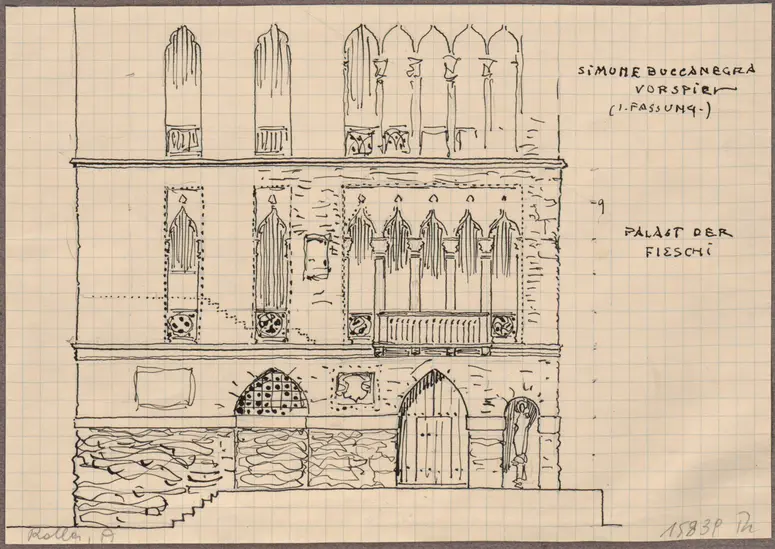 SIMONE BUCCANEGRA
VORSPIEL
(1. FASSUNG.)
9
PALAST DER
FIESCHI
15839 Th